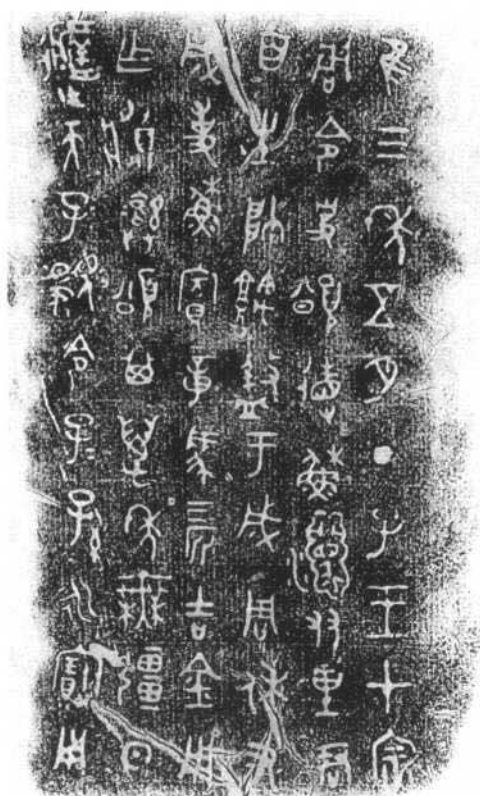 隹三年五月丁子王才宗
周令史頌省蘇友里君
百生帥堣盩于成周休又
成事蘇賓章馬四匹吉金用
乍䵼彝頌其萬年無疆日
天子令子=孫=永寶用